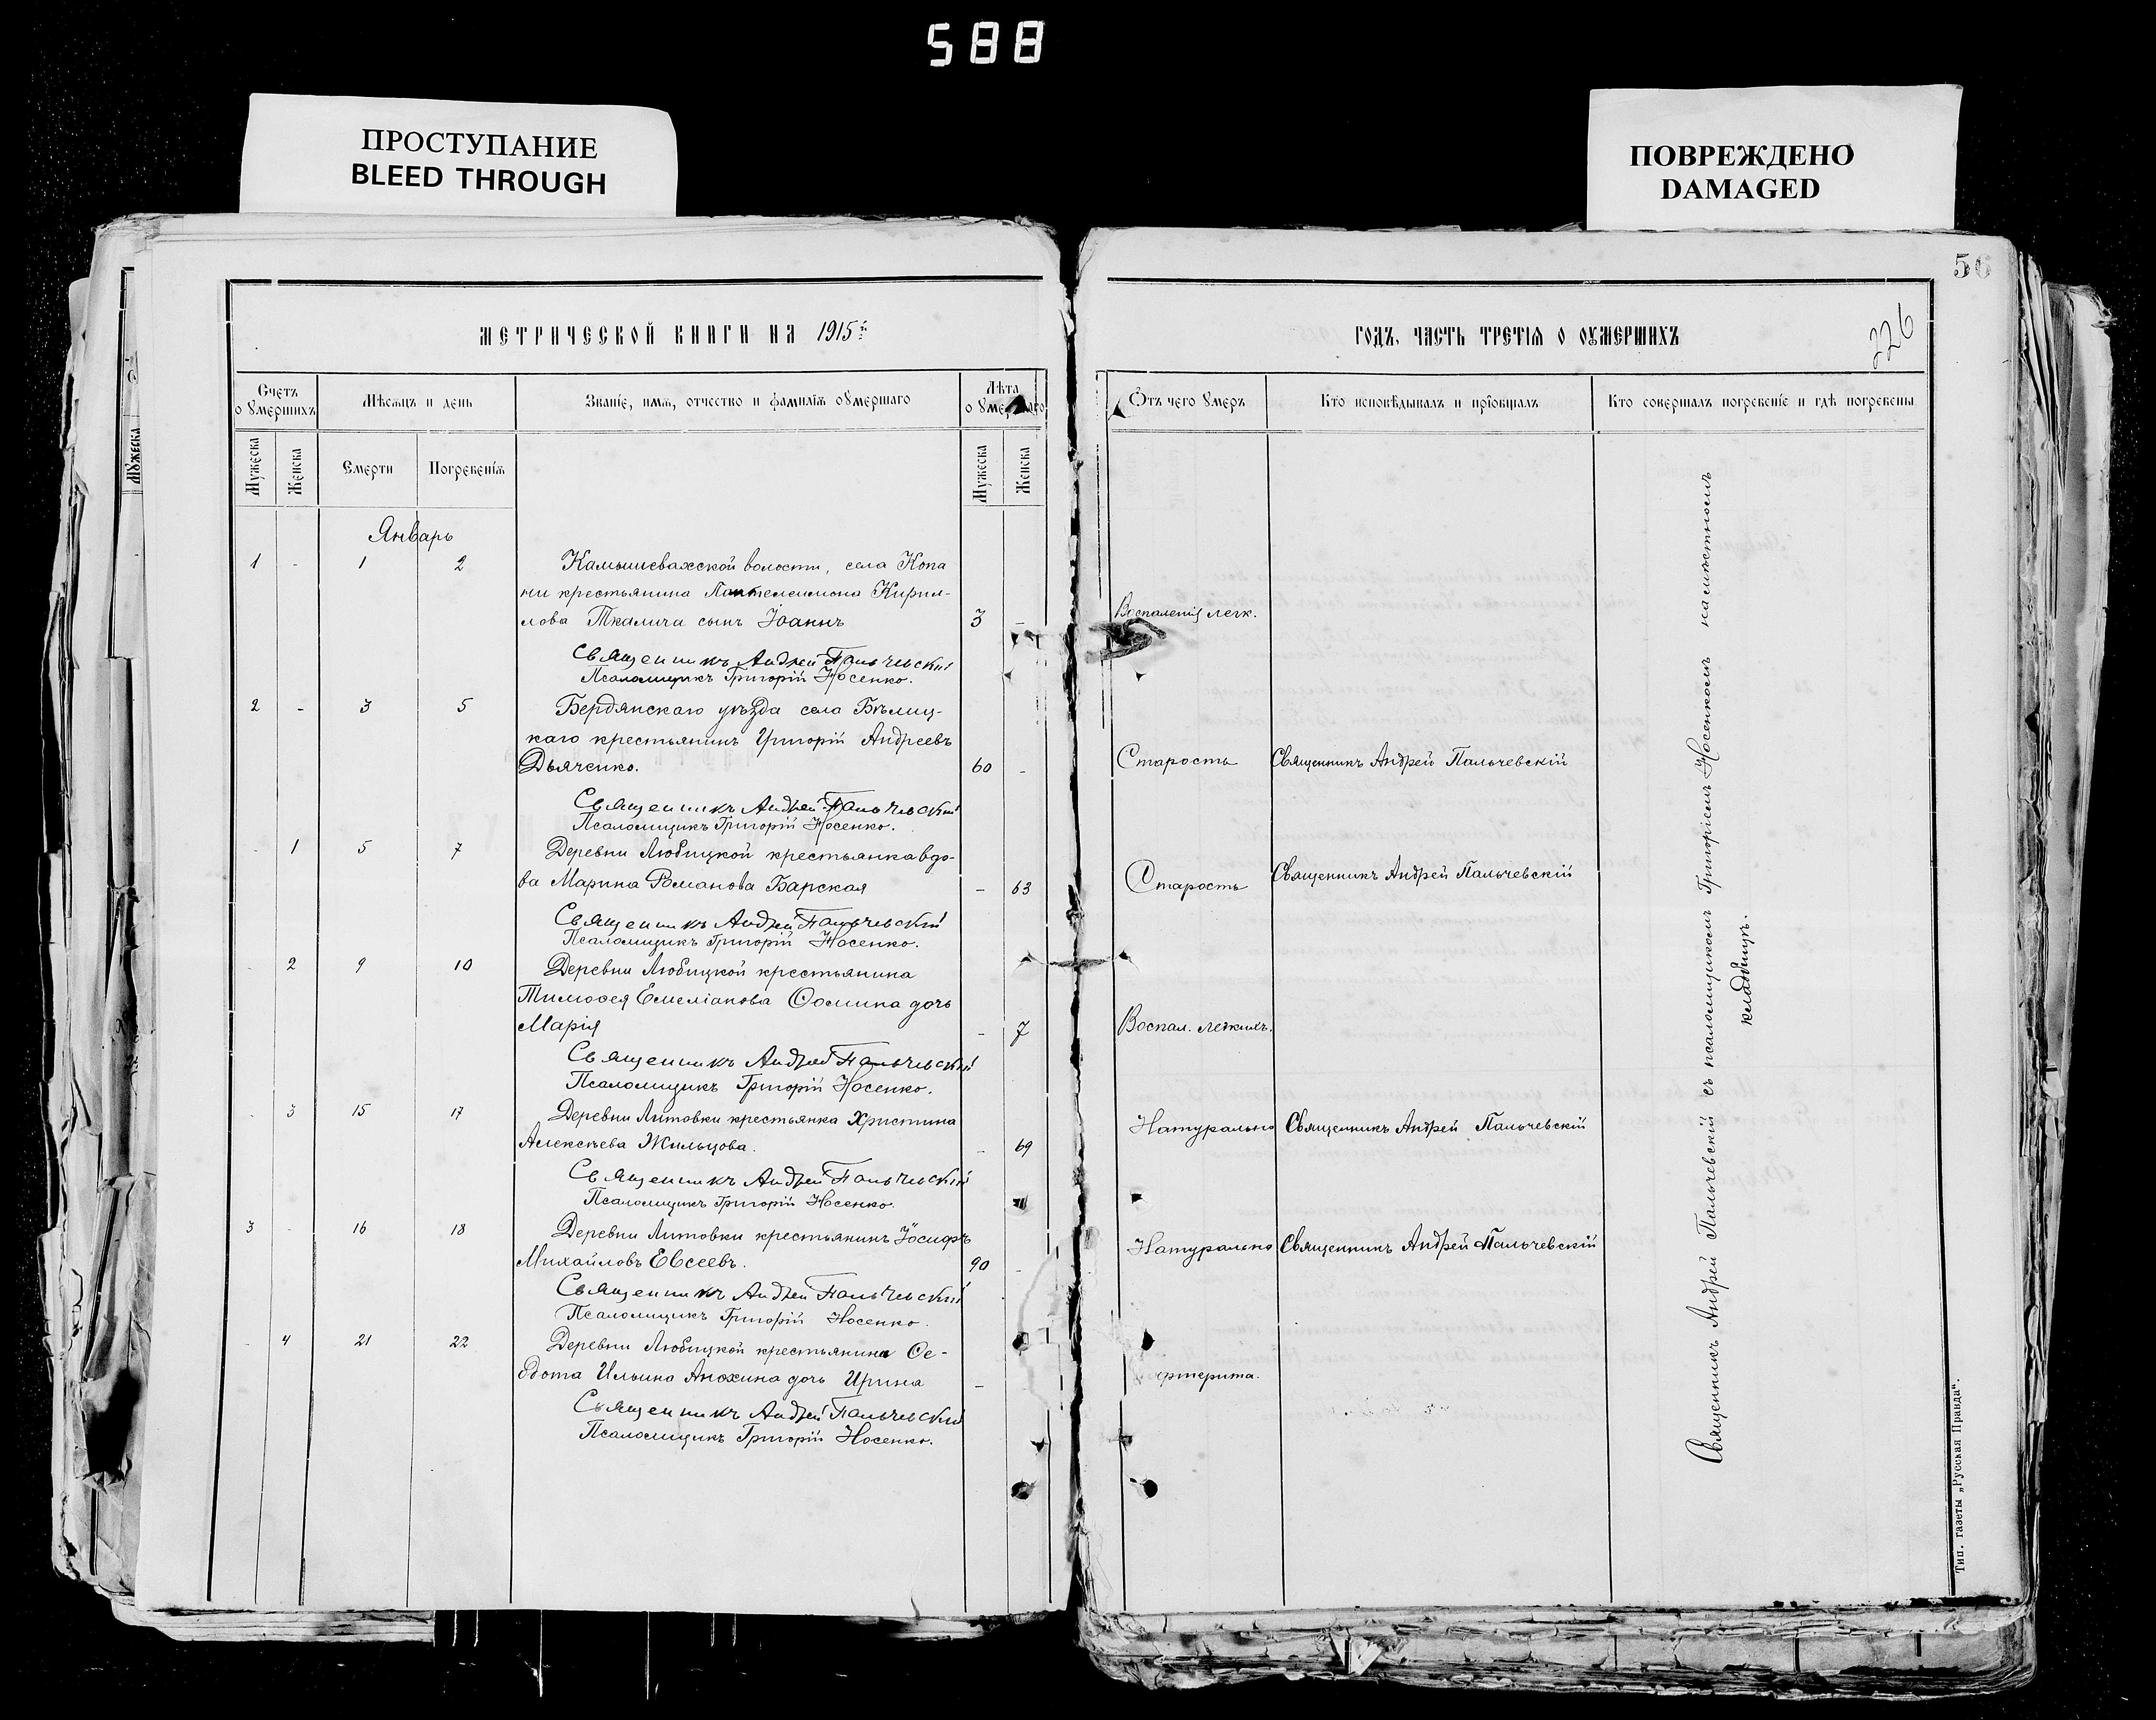 588
ПРОСТУПАНИЕ
BLEED THROUGH
ПОВРЕЖДЕНО
DAMAGED
50
МЕТРИЧЕСКОЙ КНИГИ НА 1915й
ГОДЪ, ЧАСТЬ ТРЕТІѦ О ОУМЕРШИХЪ
226
Счетъ оумершихъ
Мѣсѧцъ и день
Званіе, имѧ, отчество и фамиліѧ оумершаго
Лѣта оумершаго
Ѿтъ чего умеръ
Кто исповѣдывалъ и пріобщалъ
Кто совершалъ погребеніе и гдѣ погребены
Мужеска
Женска
Смерти
Погребеніѧ
Мужеска
Женска
Январь
1 - 1 2 Камышевахской волости, села Копа
ни крестьянина Пантелеимона Кирил-
лова Ткалича сынъ Іоаннъ 3 - Воспаленія легк.
Священникъ Андрей Пальчевскій
Псаломщикъ Григорій Носенко.
2 - 3 5 Бердянскаго уѣзда села Бѣлиц-
каго крестьянинъ Григорій Андреевъ
Дьяченко. 60 - Старость Священникъ Андрей Пальчевскій
Священникъ Андрей Пальчевскій
Псаломщикъ Григорій Носенко.
- 1 5 7 Деревни Любицкой крестьянка вдо-
ва Марина Романова Барская - 63 Старость Священникъ Андрей Пальчевскій
Священникъ Андрей Пальчевскій
Псаломщикъ Григорій Носенко.
- 2 9 10 Деревни Любицкой крестьянина
Тимоѳея Емеліанова Ѳомина дочь
Марія - 7 Воспал. легкихъ.
Священникъ Андрей Пальчевскій
Псаломщикъ Григорій Носенко.
- 3 15 17 Деревни Литовки крестьянка Христина
Алексѣева Жильцова. - 69 Натурально Священникъ Андрей Пальчевскій
Священникъ Андрей Пальчевскій
Псаломщикъ Григорій Носенко.
3 - 16 18 Деревни Литовки крестьянинъ Іосифъ
Михайловъ Евсеевъ. 90 - Натурально Священникъ Андрей Пальчевскій
Священникъ Андрей Пальчевскій
Псаломщикъ Григорій Носенко.
- 4 21 22 Деревни Любицкой крестьянина Ѳе-
дота Ильина Анохина дочь Ирина - фтерита.
Священникъ Андрей Пальчевскій
Псаломщикъ Григорій Носенко.
Священникъ Андрей Пальчевскій съ псаломщикомъ Григоріемъ Носенкомъ на мѣстномъ
кладбищѣ.
Тип. газеты „Русская Правда“.